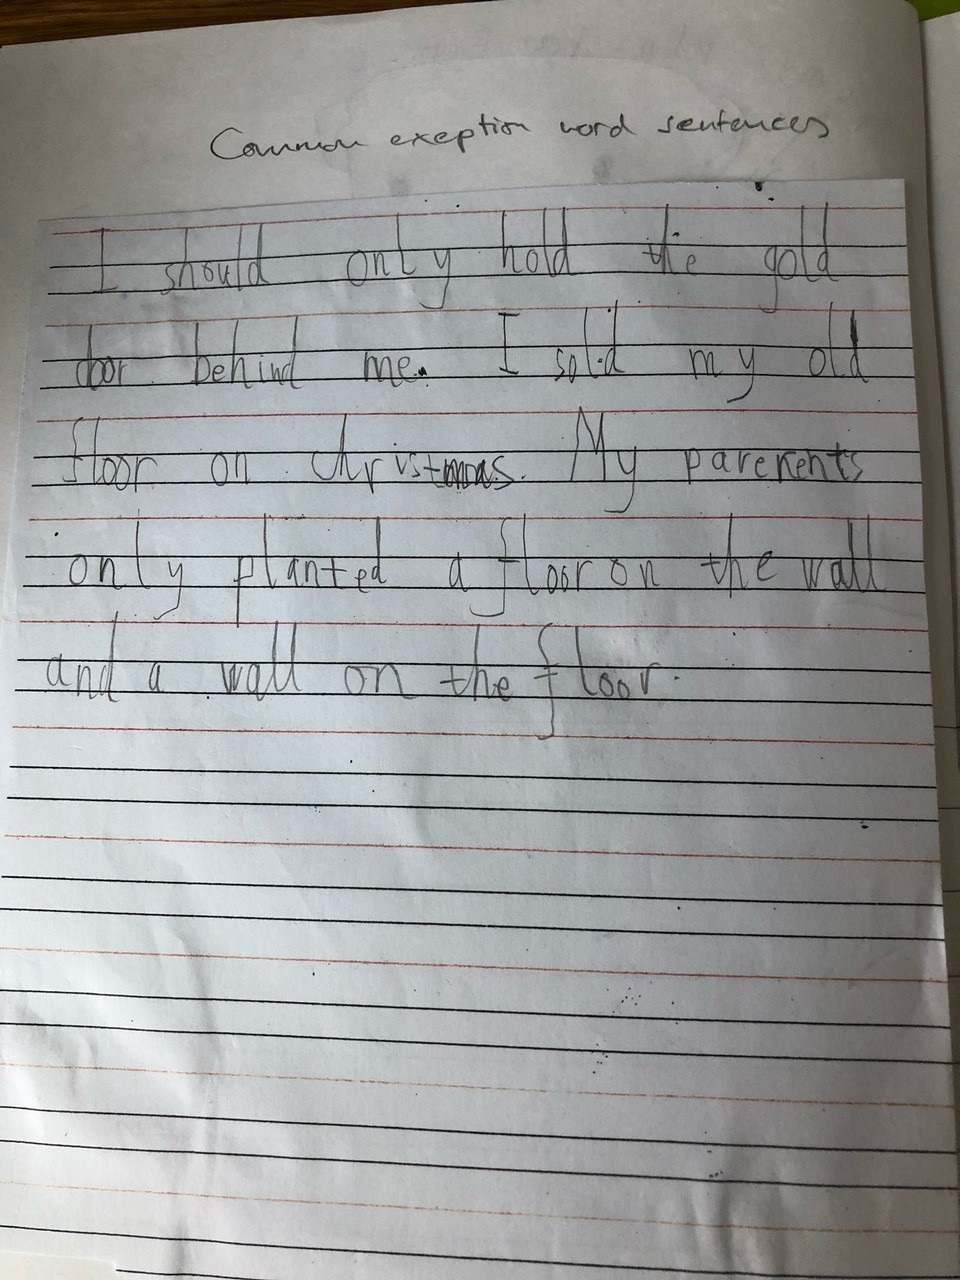 Common exeption word sentences
I should only hold the gold
door behind me. I sold my old
floor on christmas. My parerents
only planted a floor on the wall
and a wall on the floor.